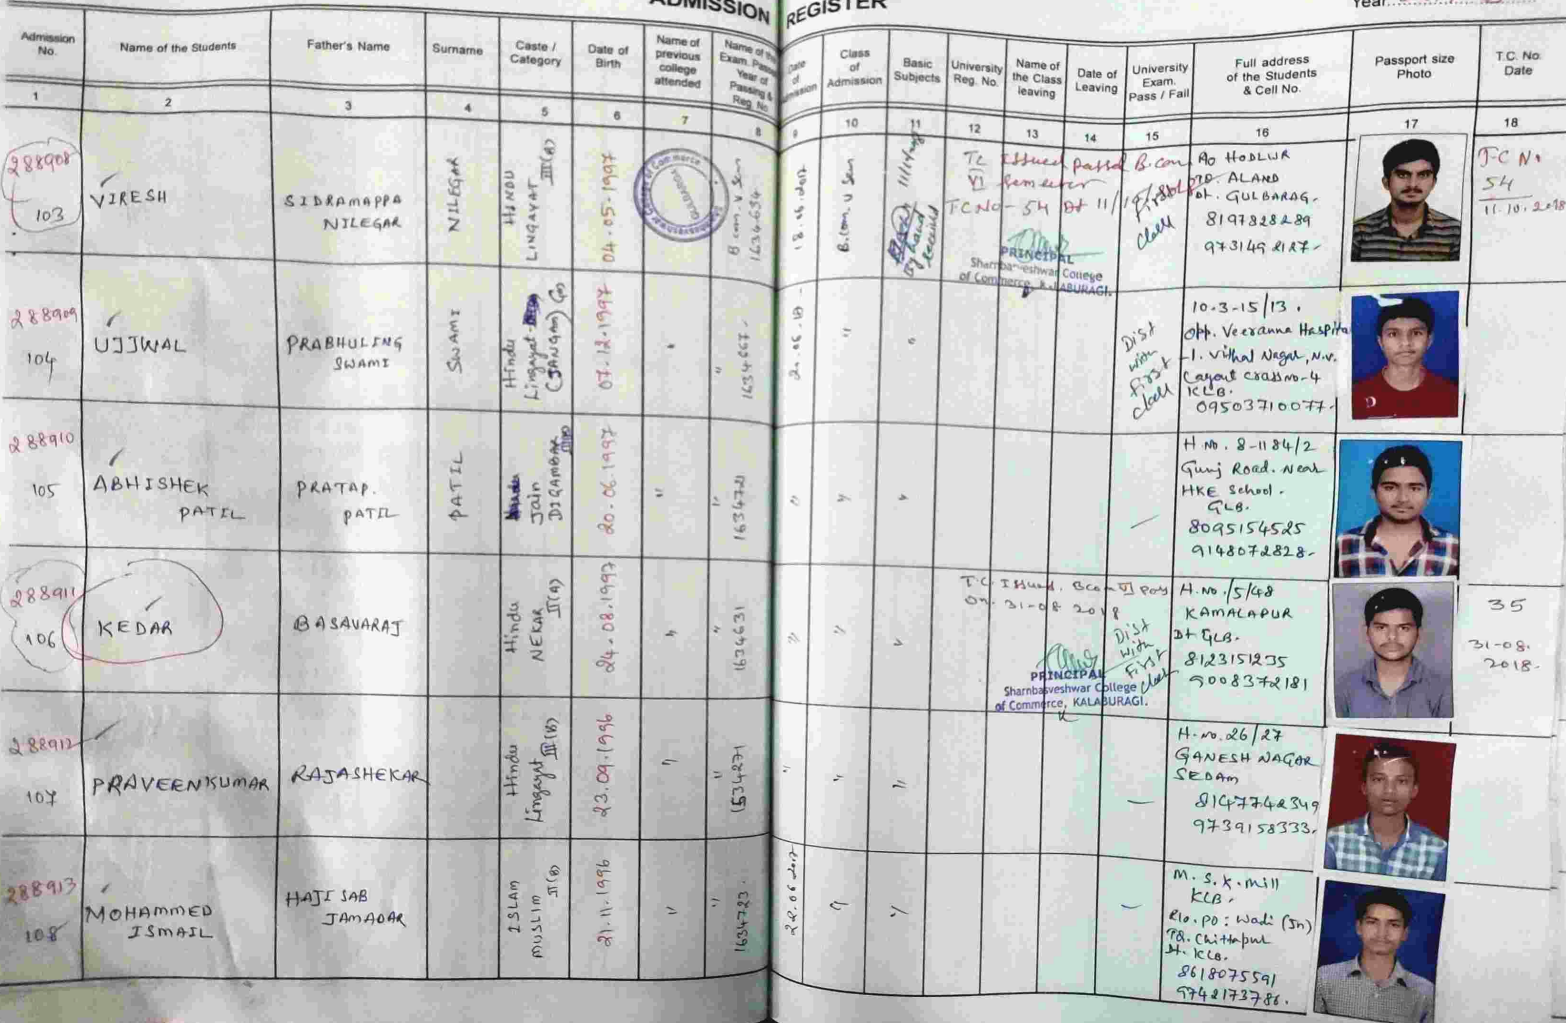 ADMISSION REGISTER
Year
Admission No.
Name of the Students
Father's Name
Surname
Caste / Category
Date of Birth
Name of previous college attended
Name of the Exam. Passed Year of Passing & Reg. No.
Date of Admission
Class of Admission
Basic Subjects
University Reg. No.
Name of the Class leaving
Date of Leaving
University Exam. Pass / Fail
Full address of the Students & Cell No.
Passport size Photo
T.C. No. Date
1 2 3 4 5 6 7 8 9 10 11 12 13 14 15 16 17 18
288908
103
VIRESH
SIDRAMAPPA
NILEGAR
NILEGAR
HINDU
LINGAYAT III(B)
04.05.1997
B com. V Sem
1634654
B.com. V Sem
By hand
Received
TC Issued passed B.com
VI Semester
TC No - 54 Dt 11/10/
First
Class
PRINCIPAL
Sharnbasveshwar College
of Commerce, KALABURAGI.
HODLUR
ALAND
Dt. GULBARAG.
8197828289
T.C No
54
11.10.2018
288909
104
UJJWAL
PRABHULING
SWAMI
SWAMI
Hindu
Lingayat
(JANGAM)
07.12.1997
"
"
1634667
"
"
Dist
with
First
Class
10-3-15/13.
Opp. Veeranna Hospita
Vithal Nagar, N.V.
Layout cross no-4
KLB.
09503710077
288910
105
ABHISHEK
PATIL
PRATAP.
PATIL
PATIL
Jain
DIGAMBAR
20.06.1997
"
"
1634721
"
"
"
H.No. 8-1184/2
Gunj Road. Near
HKE School.
GLB.
8095154525
9148072828
288911
106
KEDAR
BASAVARAJ
Hindu
NEKAR II(A)
24.08.1997
"
"
1634631
"
"
"
T.C. Issued. Bcom VI pass
on. 31-08 2018
Dist
with
First
Class
PRINCIPAL
Sharnbasveshwar College
of Commerce, KALABURAGI.
H.No./5/48
KAMALAPUR
Dt GLB.
8123151235
9008372181
35
31-08.
2018.
288912
107
PRAVEENKUMAR
RAJASHEKAR
Hindu
Lingayat III(B)
23.09.1996
"
"
1534271
"
"
"
H.no.26/27
GANESH NAGAR
SEDAM
8147742349
9739158333.
288913
108
MOHAMMED
ISMAIL
HAJI SAB
JAMADAR
ISLAM
MUSLIM II(B)
21.11.1996
"
"
1634723.
22.06.2017
"
"
M.S.K. mill
KLB.
R/o. po: Wadi (Jn)
Tq. Chittapur
Dt. KLB.
8618075591
9742173786.